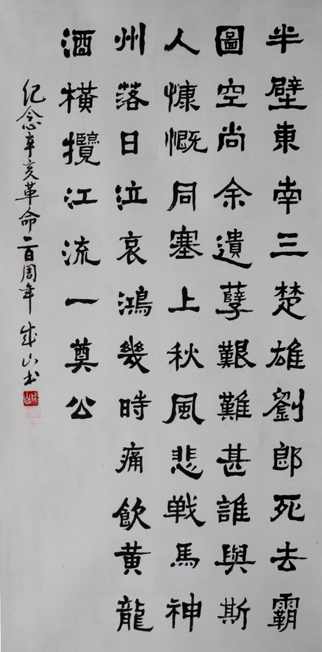 半壁東南三楚雄劉郎死去霸
圖空尚余遺孽艱難甚誰與斯
人慷慨同塞上秋風悲戦馬神
州落日泣哀鴻幾時痛飲黃龍
酒橫攬江流一奠公
纪念辛亥革命一百周年 成山书